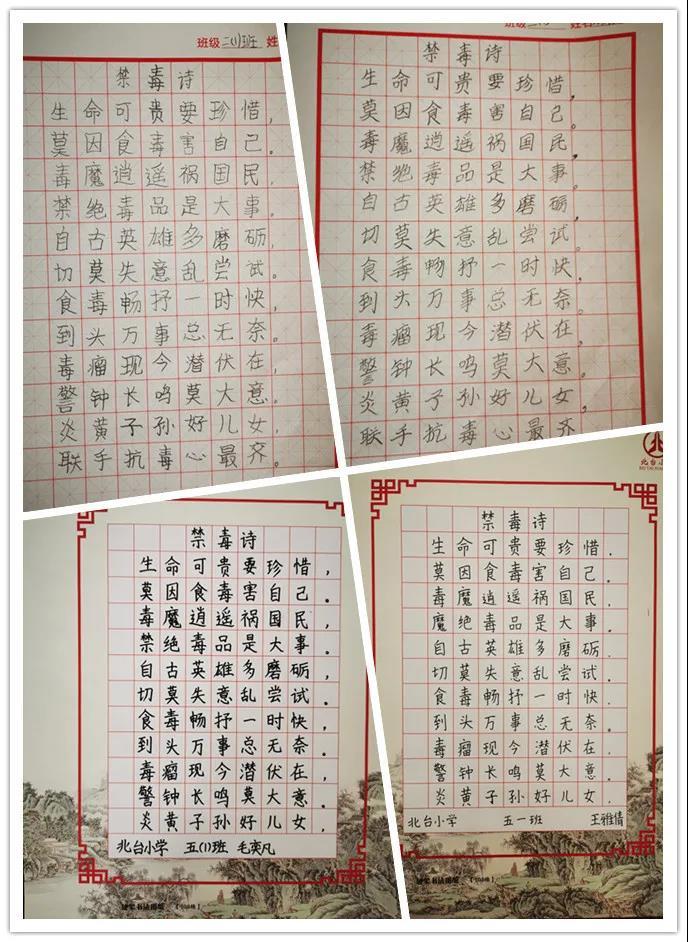 班级 二(1)班 姓
禁毒诗
生命可贵要珍惜,
莫因食毒害自己。
毒魔逍遥祸国民,
禁绝毒品是大事。
自古英雄多磨砺,
切莫失意乱尝试。
食毒畅抒一时快,
到头万事总无奈。
毒瘤现今潜伏在,
警钟长鸣莫大意。
炎黄子孙好儿女,
联手抗毒心最齐。
禁毒诗
生命可贵要珍惜,
莫因食毒害自己。
毒魔逍遥祸国民,
禁绝毒品是大事。
自古英雄多磨砺,
切莫失意乱尝试。
食毒畅抒一时快,
到头万事总无奈。
毒瘤现今潜伏在,
警钟长鸣莫大意。
炎黄子孙好儿女,
联手抗毒心最齐
禁毒诗
生命可贵要珍惜,
莫因食毒害自己。
毒魔逍遥祸国民,
禁绝毒品是大事。
自古英雄多磨砺,
切莫失意乱尝试。
食毒畅抒一时快,
到头万事总无奈。
毒瘤现今潜伏在,
警钟长鸣莫大意。
炎黄子孙好儿女,
北台小学 五(1)班 毛奕凡
硬笔书法用纸
北台小
禁毒诗
生命可贵要珍惜.
莫因食毒害自己.
毒魔逍遥祸国民.
魔绝毒品是大事.
自古英雄多磨砺.
切莫失意乱尝试.
食毒畅抒一时快.
到头万事总无奈.
毒瘤现今潜伏在.
警钟长鸣莫大意.
炎黄子孙好儿女.
北台小学 五一班 王雅倩
硬笔书法用纸